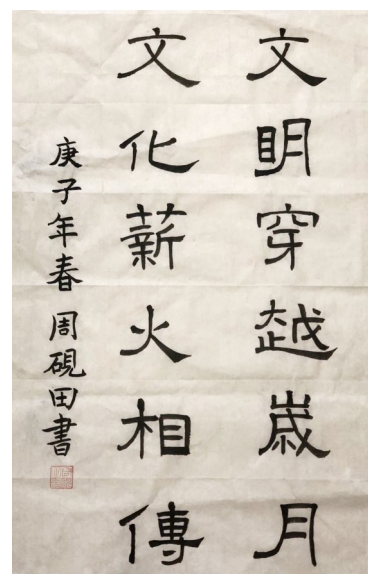 文明穿越歲月
文化薪火相傳
庚子年春 周硯田書